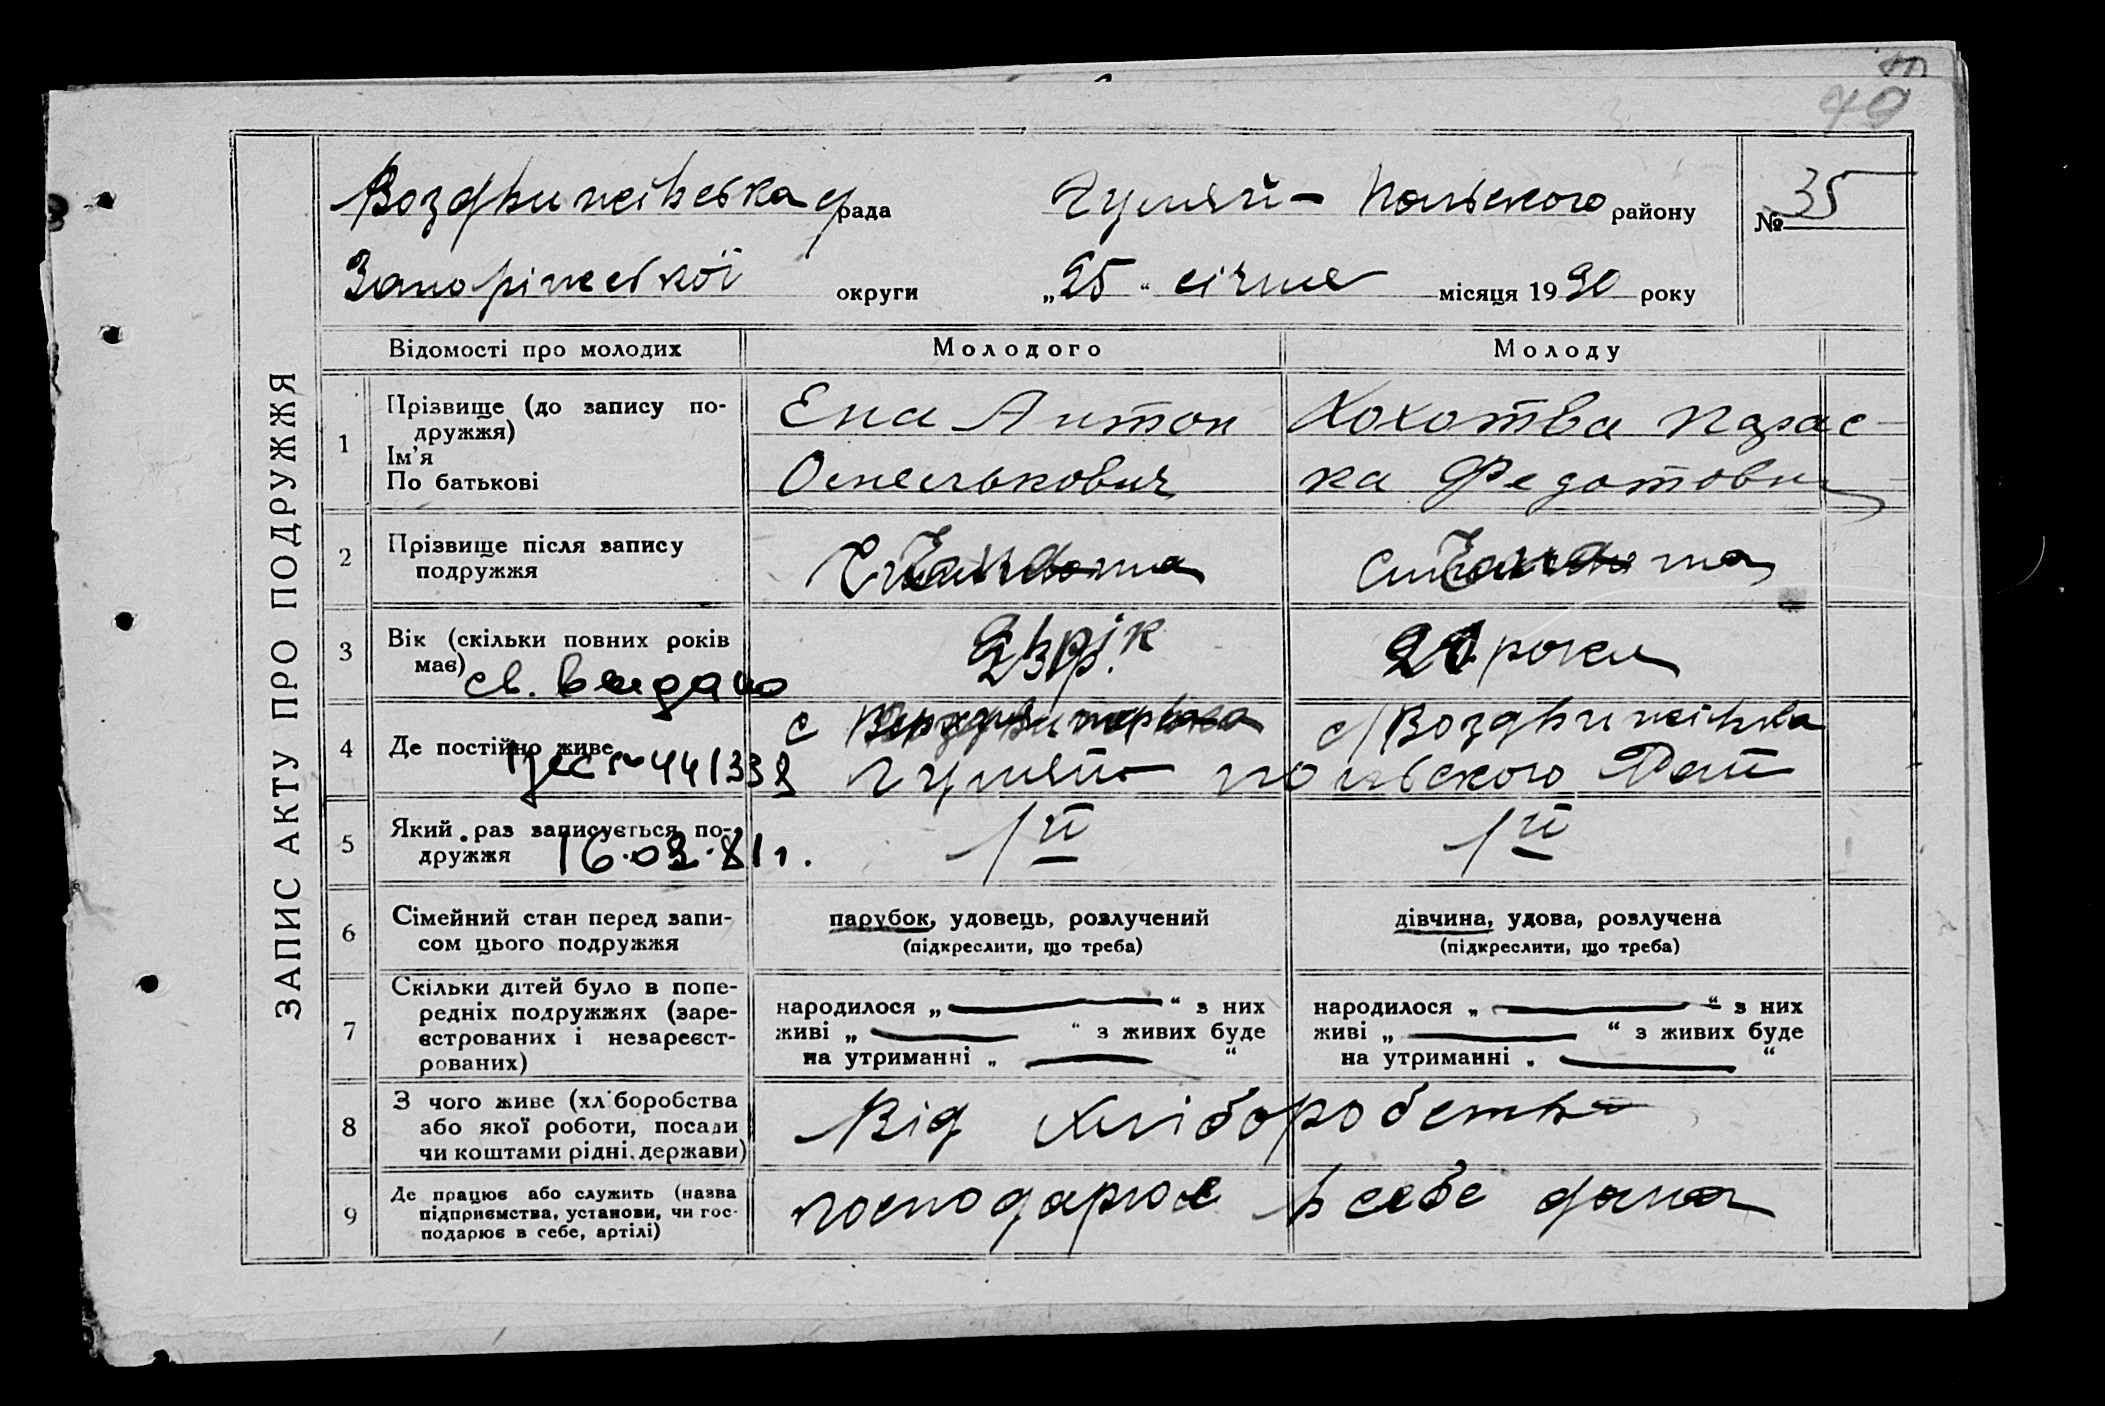 40
Воздвижівська рада Гуляй-Польського району № 35
Запоріжської округи „25“ січня місяця 1930 року
ЗАПИС АКТУ ПРО ПОДРУЖЖЯ
Відомості про молодих Молодого Молоду
1 Прізвище (до запису по-
дружжя)
Ім'я
По батькові
Ена Антон
Омелькович
Хохотва Парас-
ка Федотовна
2 Прізвище після запису
подружжя
3 Вік (скільки повних років
має)
23 р. рік
роки
св. выдано
4 Де постійно живе
с с/Воздвижівка
Гуляй-польского
№ 441338
5 Який раз записується по-
дружжя
1й 1й
16.03.81 г.
6 Сімейний стан перед запи-
сом цього подружжя
парубок, удовець, розлучений
(підкреслити, що треба)
дівчина, удова, розлучена
(підкреслити, що треба)
7 Скільки дітей було в попе-
редніх подружжях (заре-
єстрованих і незареєст-
рованих)
народилося „ “ з них
живі „ “ з живих буде
на утриманні „ “
народилося „ “ з них
живі „ “ з живих буде
на утриманні „ “
8 З чого живе (хліборобства
або якої роботи, посади
чи коштами рідні, держави)
Від хліборобства
9 Де працює або служить (назва
підприємства, установи, чи гос-
подарює в себе, артілі)
господарює в себе дома